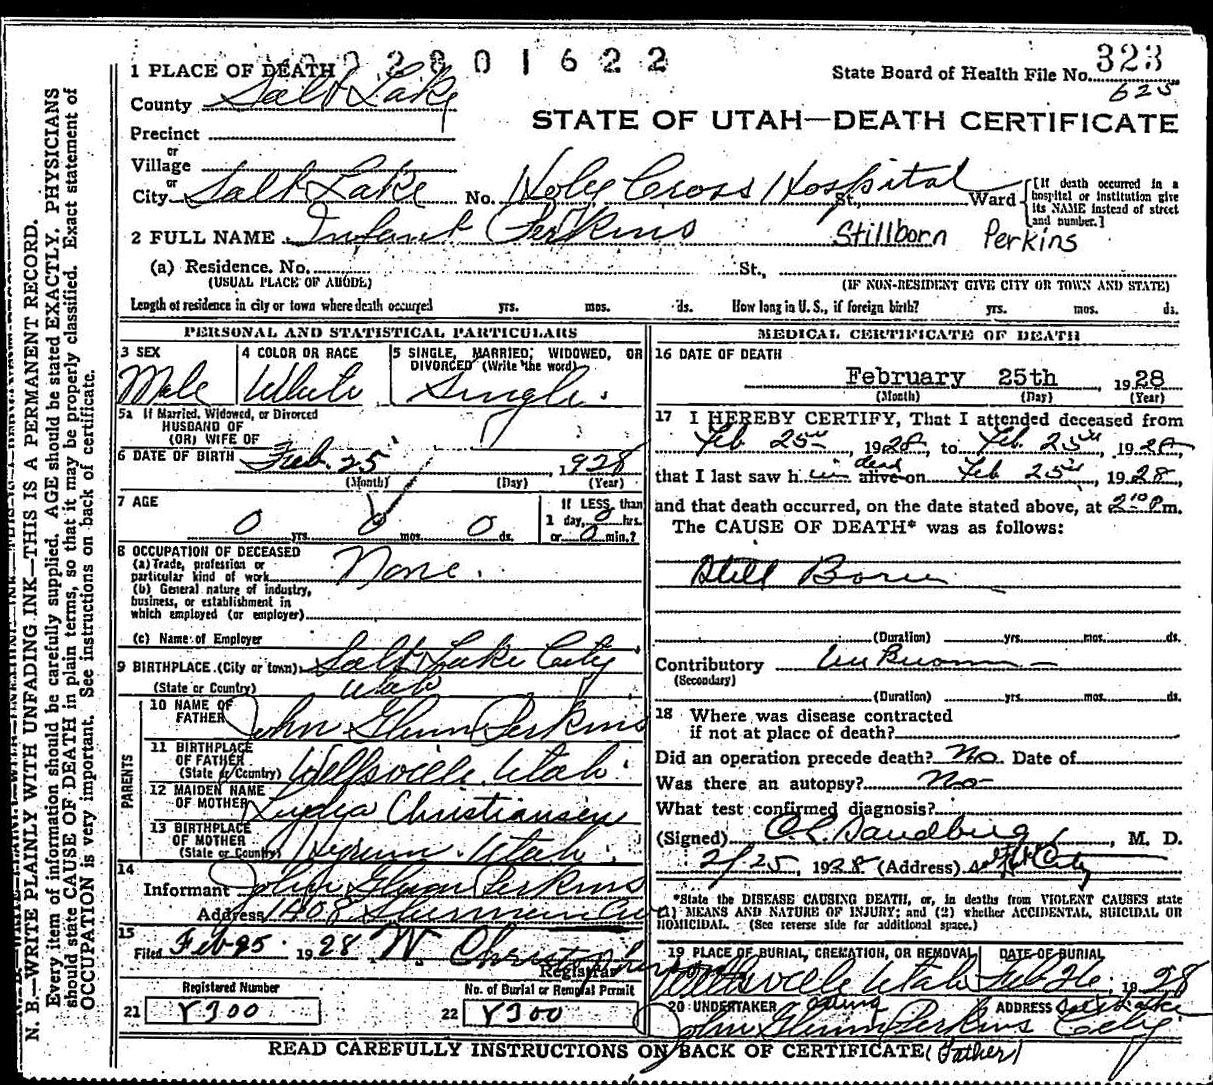 2801622
State Board of Health File No. 323
625
1 PLACE OF DEATH
County Salt Lake
STATE OF UTAH—DEATH CERTIFICATE
Precinct
or
Village
or
City Salt Lake No. Holy Cross Hospital St., Ward
[If death occurred in a
hospital or institution give
its NAME instead of street
and number.]
2 FULL NAME Infant Perkins Stillborn Perkins
(a) Residence. No. St.,
(USUAL PLACE OF ABODE) (IF NON-RESIDENT GIVE CITY OR TOWN AND STATE)
Length of residence in city or town where death occurred yrs. mos. ds. How long in U. S., if foreign birth? yrs. mos. ds.
PERSONAL AND STATISTICAL PARTICULARS
3 SEX Male
4 COLOR OR RACE White
5 SINGLE, MARRIED, WIDOWED, OR
DIVORCED (Write the word)
Single.
5a If Married, Widowed, or Divorced
HUSBAND OF
(OR) WIFE OF
6 DATE OF BIRTH Feb. 25, 1928
(Month) (Day) (Year)
7 AGE
0 yrs. 0 mos. 0 ds.
If LESS than
1 day, 0 hrs.
or 0 min.?
8 OCCUPATION OF DECEASED
(a) Trade, profession or
particular kind of work None.
(b) General nature of industry,
business, or establishment in
which employed (or employer)
(c) Name of Employer
9 BIRTHPLACE (City or town) Salt Lake City
(State or Country) Utah
PARENTS
10 NAME OF
FATHER John Glenn Perkins
11 BIRTHPLACE
OF FATHER
(State or Country) Wellsville Utah.
12 MAIDEN NAME
OF MOTHER Lydia Christiansen
13 BIRTHPLACE
OF MOTHER
(State or Country) Hyrum. Utah.
14
Informant John Glenn Perkins
Address
15
Filed Feb 25. 1928 W. Christopherson
Registrar
Registered Number
21 Y300
No. of Burial or Removal Permit
22 Y300
MEDICAL CERTIFICATE OF DEATH
16 DATE OF DEATH
February 25th, 1928
(Month) (Day) (Year)
17 I HEREBY CERTIFY, That I attended deceased from
Feb 25th, 1928, to Feb. 25th, 1928,
that I last saw h im dead alive on Feb 25th, 1928,
and that death occurred, on the date stated above, at 2:10 P.m.
The CAUSE OF DEATH* was as follows:
Still Born
(Duration) yrs. mos. ds.
Contributory Unknown
(Secondary)
(Duration) yrs. mos. ds.
18 Where was disease contracted
if not at place of death?
Did an operation precede death? No. Date of
Was there an autopsy? No
What test confirmed diagnosis?
(Signed) O L Sandberg, M. D.
2/25, 1928 (Address) City
*State the DISEASE CAUSING DEATH, or, in deaths from VIOLENT CAUSES state
(1) MEANS AND NATURE OF INJURY; and (2) whether ACCIDENTAL, SUICIDAL OR
HOMICIDAL. (See reverse side for additional space.)
19 PLACE OF BURIAL, CREMATION, OR REMOVAL DATE OF BURIAL
Wellsville Utah Feb 26, 1928
20 UNDERTAKER acting ADDRESS Salt Lake
John Glenn Perkins City
(Father)
READ CAREFULLY INSTRUCTIONS ON BACK OF CERTIFICATE
N. B.—WRITE PLAINLY WITH UNFADING INK—THIS IS A PERMANENT RECORD.
Every item of information should be carefully supplied. AGE should be stated EXACTLY. PHYSICIANS
should state CAUSE OF DEATH in plain terms, so that it may be properly classified. Exact statement of
OCCUPATION is very important. See instructions on back of certificate.